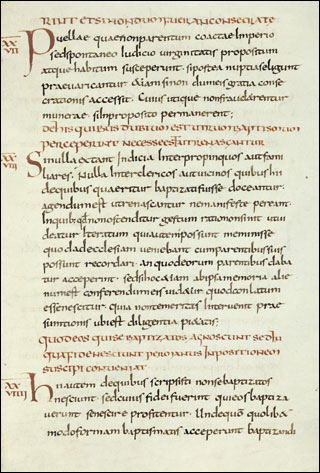 RINT ET SI NONDUM FUERANT CONSECRATE
XXVII Puellae quae non parentum coactae imperio
sed spontaneo iudicio virginitatis propositum
atque habitum susceperunt. si postea nuptias eligunt
praevaricantur. etiam si nondum eis gratia conse
crationis accessit. Cuius utique non fraudarentur
munerae. si in proposito permanerent;
DE HIS QUIBUS DUBIUM EST UTRUM BAPTISMUM
PERCEPERINT NECESSE EST UT RENASCANTUR
XXVIII Si nulla extant indicia inter propinquos aut fami
liares. Nulla inter clericos aut vicinos quibus hii
de quibus quaeritur baptizati fuisse doceantur.
agendum est ut renascantur ne manifeste pereant.
In quibus quod non ostenditur gestum ratio non sinit ut vi
deatur iteratum qui autem possunt meminisse
quod ad ecclesiam veniebant cum parentibus suis
possunt recordari. an quod eorum parentibus daba
tur acceperint. sed si hoc etiam ab ipsa memoria alie
num est conferendum eis videtur quod conlatum
esse nescitur. quia non temeritas intervenit prae
sumtionis ubi est diligentia pietatis.
QUOD EOS QUI SE BAPTIZATOS AGNOSCUNT SED IN
QUA FIDE NESCIUNT PER MANUS INPOSITIONEM
SUSCIPI CONVENIAT
XXVIIII hii autem de quibus scripsisti non se baptizatos
nesciunt. sed cuius fidei fuerint qui eos baptiza
verunt se nescire profitentur. Unde quoniam quoliba
modo formam baptismatis acceperunt baptizandi